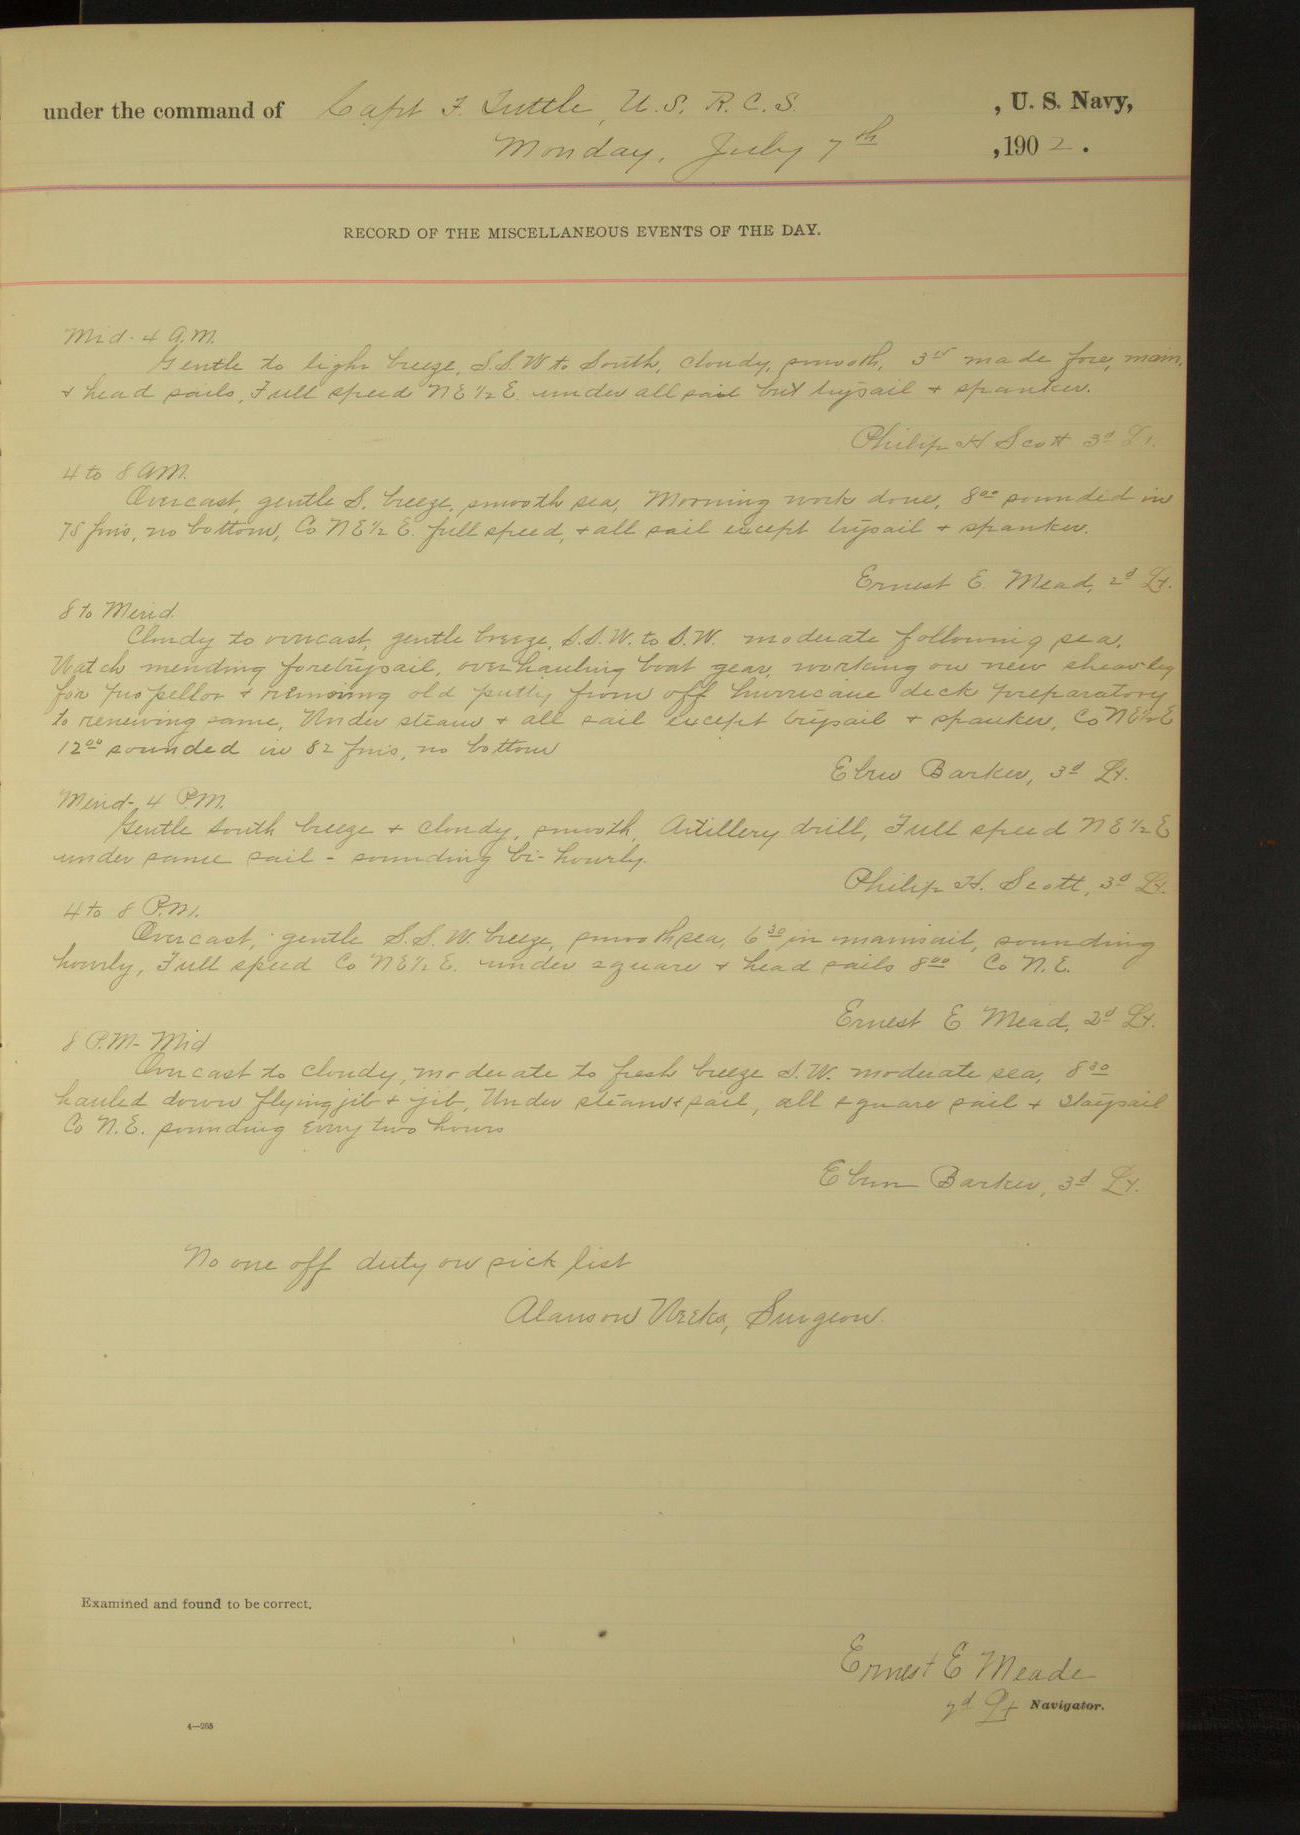 under the command of Capt F. Tuttle, U. S. R. C. S. , U. S. Navy,
Monday, July 7th ,1902.
RECORD OF THE MISCELLANEOUS EVENTS OF THE DAY.
Mid- 4 A.M.
Gentle to light breeze, S.S.W to South, cloudy, smooth, made fore, main,
+ head sails, Full speed NE½E under all sail but trysail + spanker.
Philip H Scott 3d Lt.
4 to 8 AM.
Overcast, gentle S. breeze, smooth sea, Morning work done, 800 sounded in
75 fms, no bottom, Co NE½E. full speed, + all sail except trysail + spanker.
Ernest E. Mead, 2d Lt.
8 to Merid.
Cloudy to overcast, gentle breeze, S.S.W. to S.W. moderate following sea,
Watch mending foretrysail, overhauling boat gear, working on new shear leg
for propellor + removing old putty from off hurricane deck preparatory
to renewing same, Under steam + all sail except trysail + spanker, Co NE½E
1200 sounded in 82 fms, no bottom
Eben Barker, 3d Lt.
Merid- 4 P.M.
Gentle South breeze + cloudy, smooth, Artillery drill, Full speed NE½E
under same sail - sounding bi-hourly.
Philip H. Scott, 3d Lt.
4 to 8 P.M.
Overcast, gentle S.S.W. breeze, smooth sea, 630 in mainsail, sounding
hourly, Full speed Co NE½E. under square + head sails 800 Co N.E.
Ernest E Mead, 2d Lt.
8 P.M- Mid
Overcast to cloudy, moderate to fresh breeze S.W. moderate sea, 830
hauled down flying jib + jib, Under steam + sail, all square sail + staysail
Co N.E. sounding every two hours
Eben Barker, 3d Lt.
No one off duty on sick list
Alanson Weeks, Surgeon.
Examined and found to be correct.
Ernest E Meade
2d Lt Navigator.
4—265